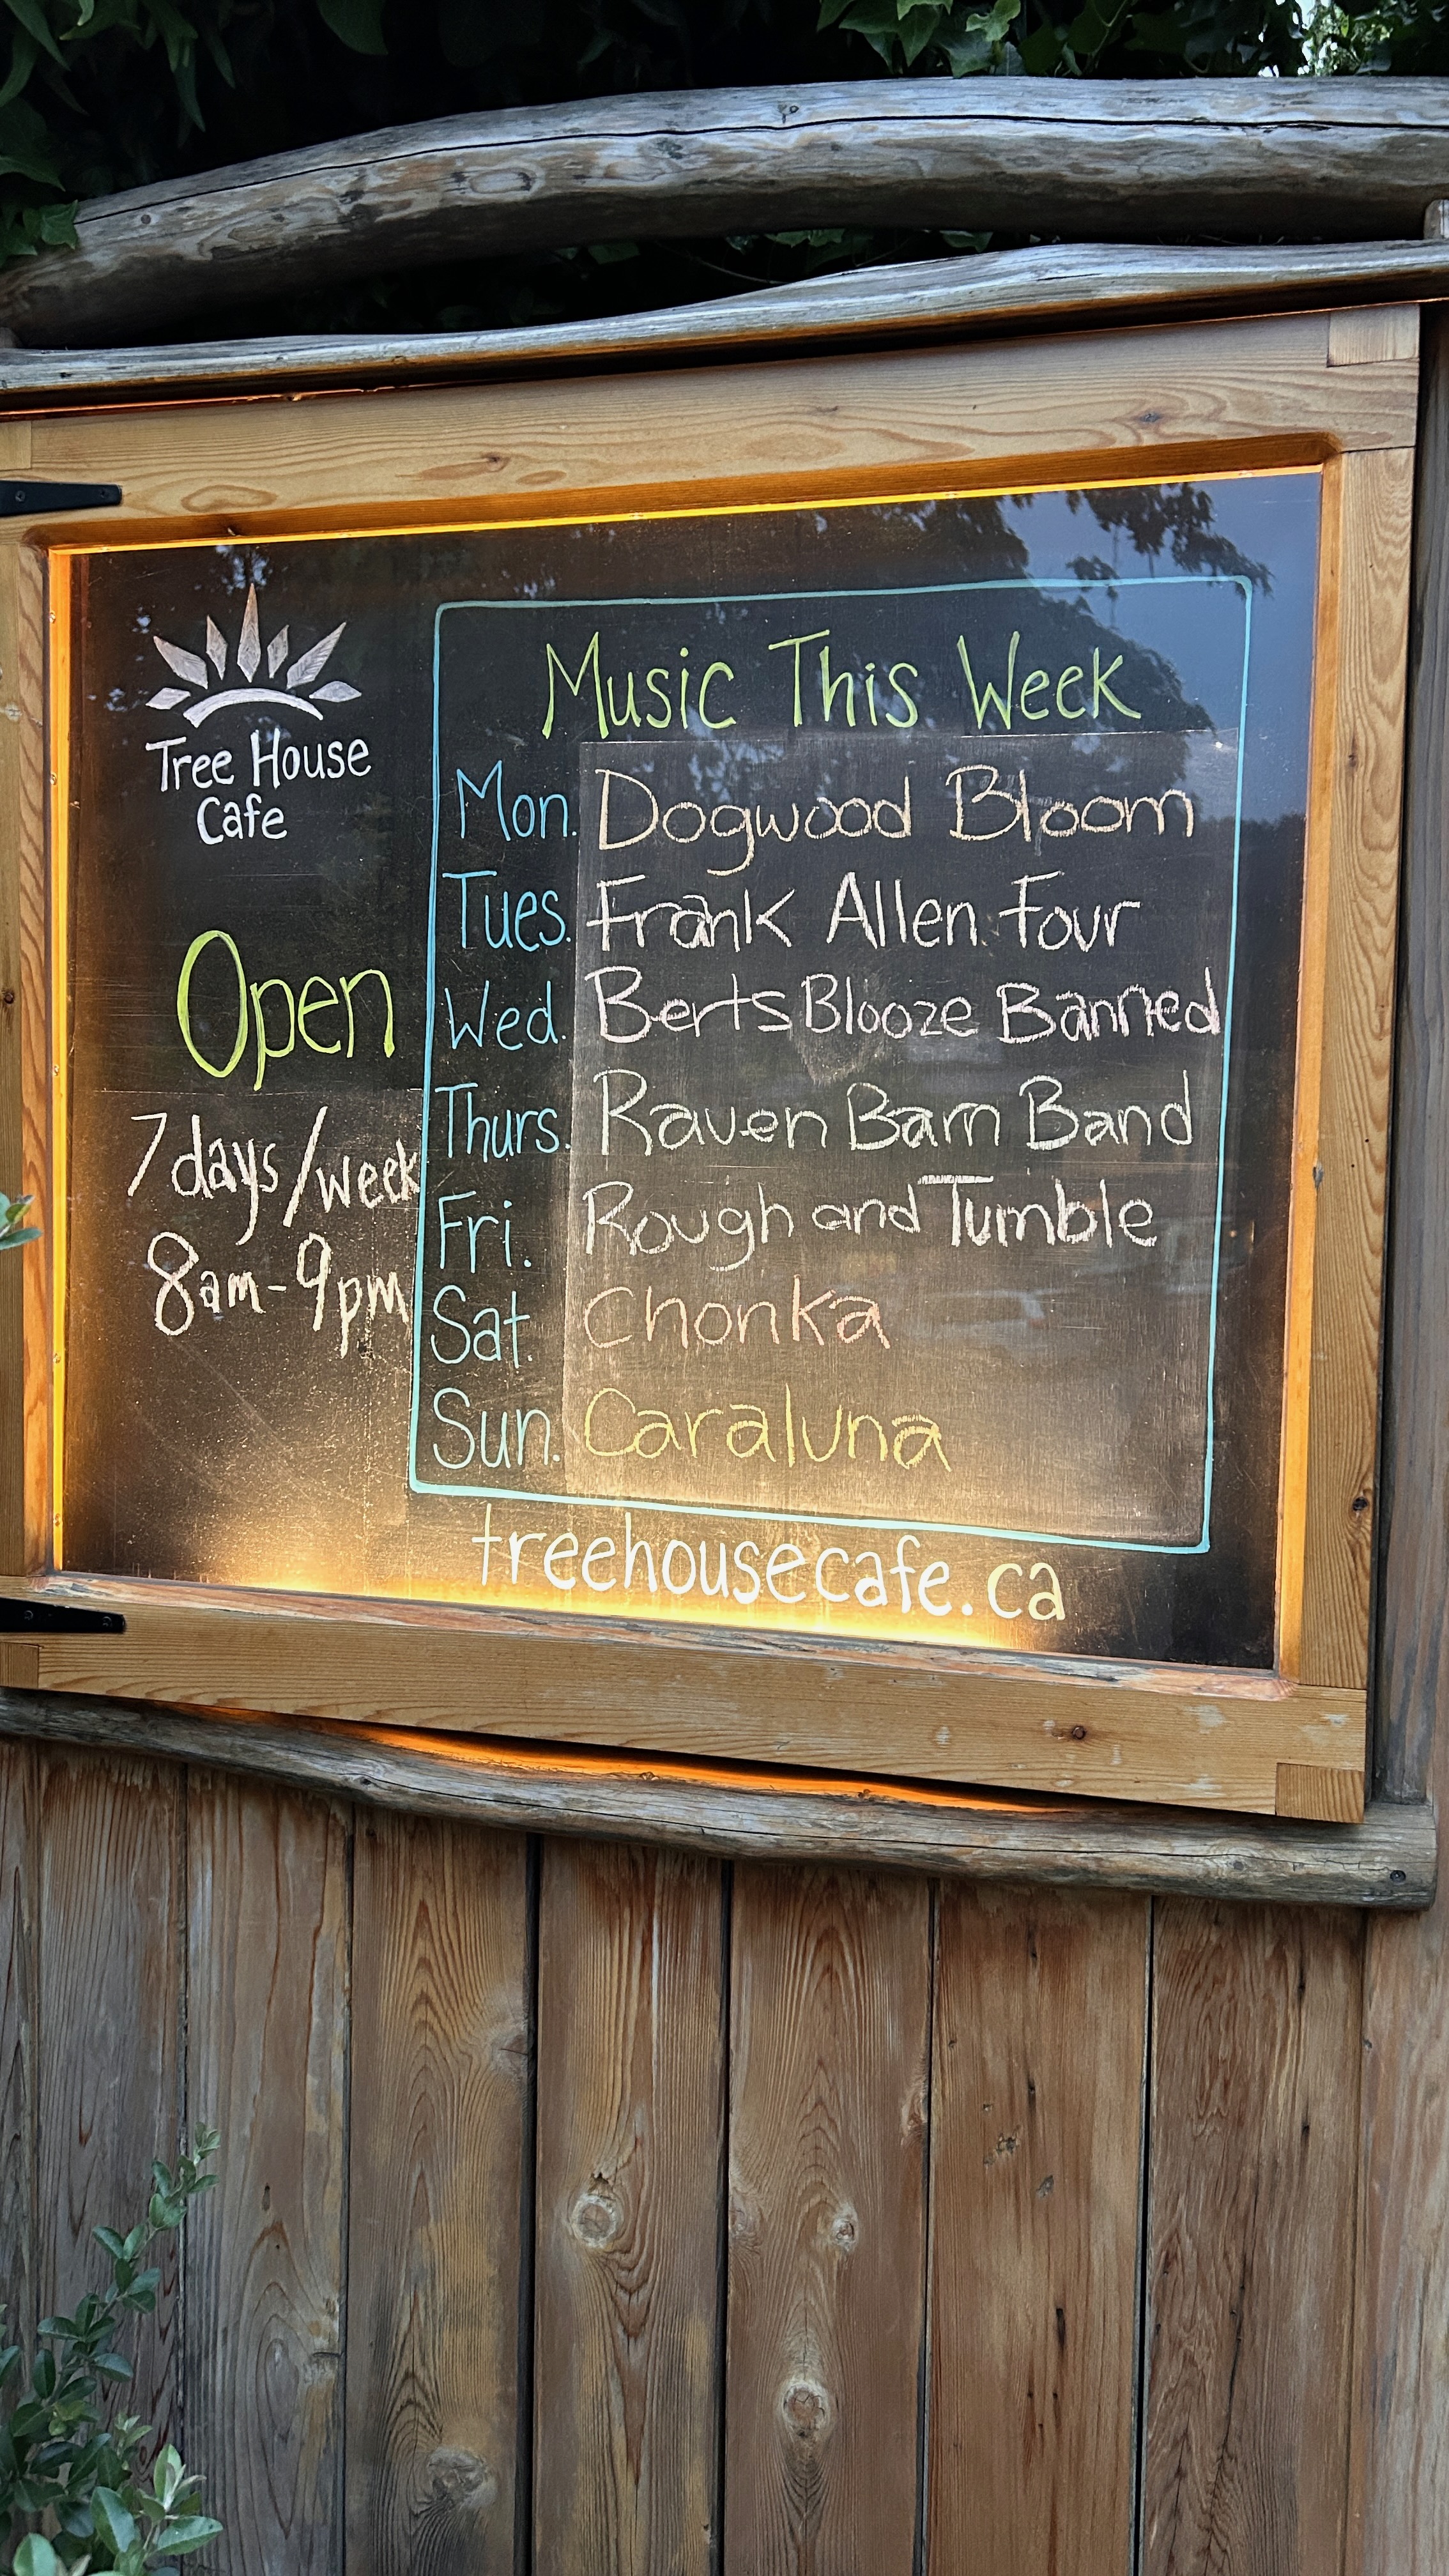 Tree House
Cafe
Open
7 days/week
8am-9pm
Music This Week
Mon. Dogwood Bloom
Tues. Frank Allen Four
Wed. Berts Blooze Banned
Thurs. Raven Barn Band
Fri. Rough and Tumble
Sat. Chonka
Sun. Caraluna
treehousecafe.ca